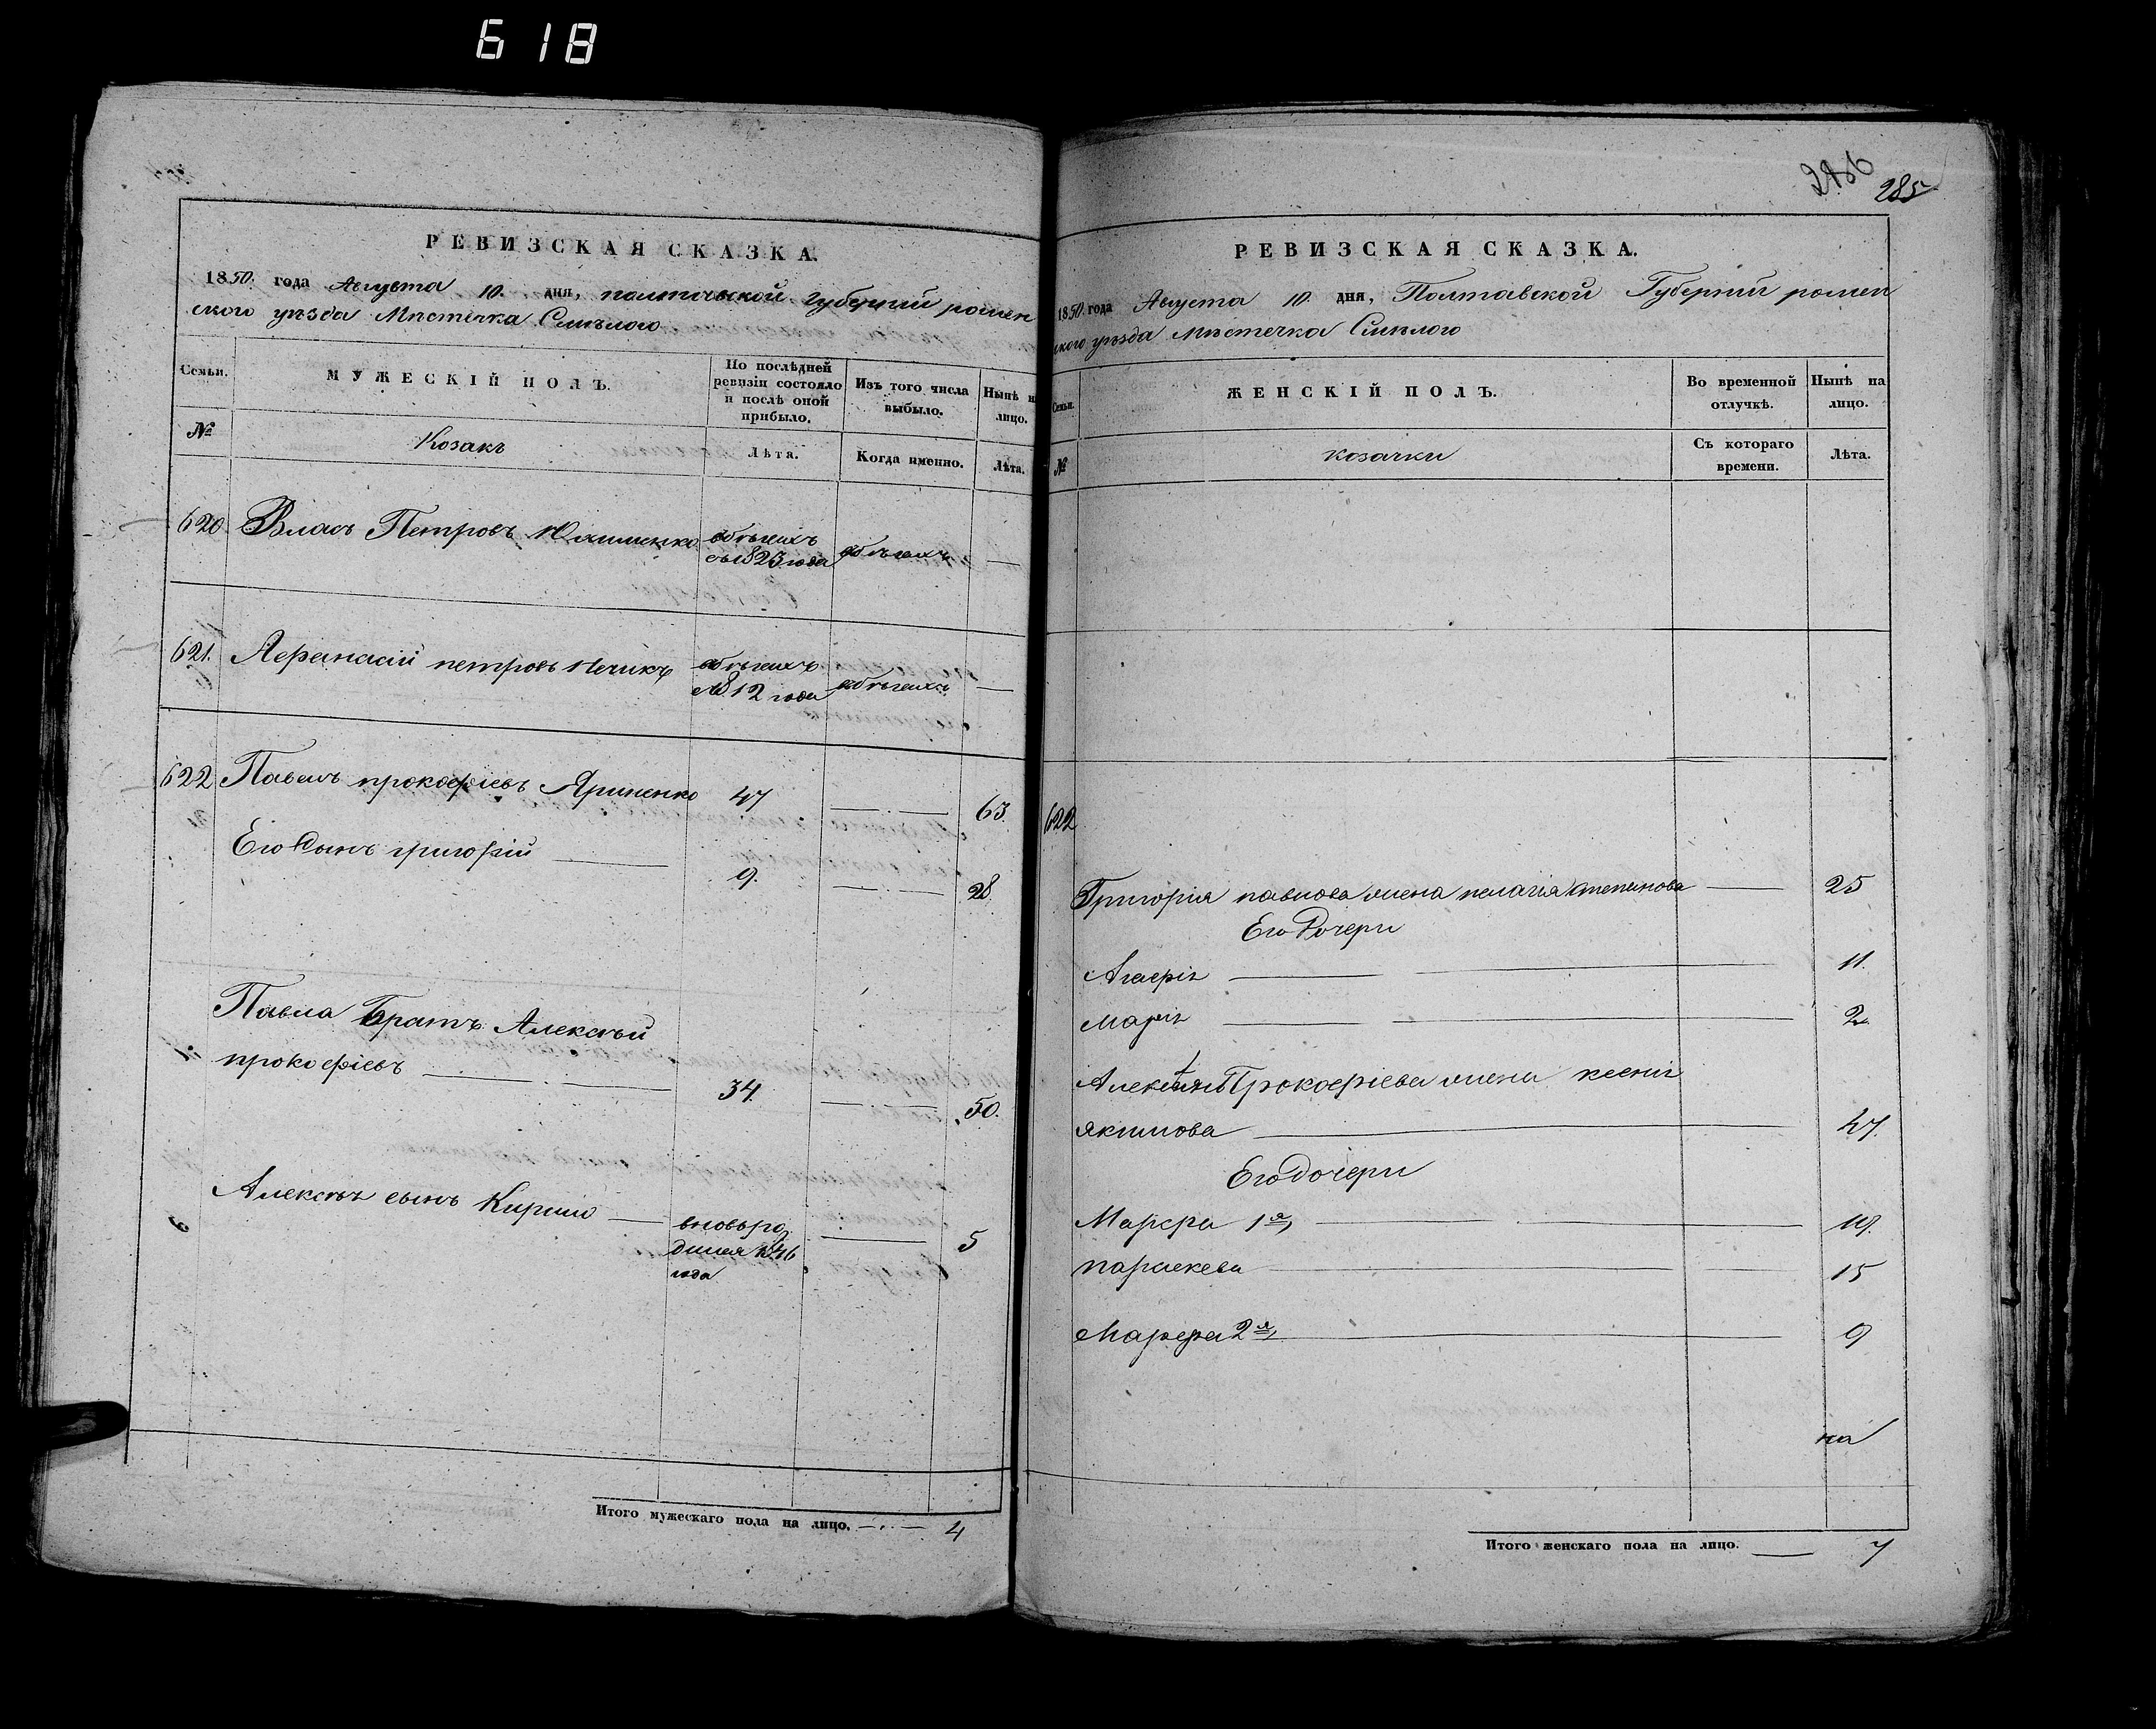 618
РЕВИЗСКАЯ СКАЗКА.
1850. года Августа 10. дня, полтавской губерний ромен
ского уѣзда Мѣстечка Смѣлого
Семьи.
МУЖЕСКІЙ ПОЛЪ.
По послѣдней ревизіи состояло и послѣ оной прибыло.
Изъ того числа выбыло.
Нынѣ на лицо.
№
Козакъ
Лѣта.
Когда именно.
Лѣта.
620. Власъ Петровъ
въ бѣгахъ съ 1823 года
въ бѣгахъ —
621. Афанасій петровъ
въ бѣгахъ с 1812 года
въ бѣгахъ —
622 Павелъ прокофіевъ Яриненко 47 — 63.
Его Сынъ григорій — 9. — 28.
Павла Братъ Алексѣй
прокофіевъ — 34. — 50.
Алексѣя сынъ Кирило — вновь ро
дился 1846
года
— 5
Итого мужескаго пола на лицо. — 4
286
285
РЕВИЗСКАЯ СКАЗКА.
1850. года Августа 10. дня, Полтавской Губерній ромен
ского уѣзда Мѣстечка Смѣлого
Семьи.
ЖЕНСКІЙ ПОЛЪ.
Во временной отлучкѣ.
Нынѣ на лицо.
№
козачки
Съ котораго времени.
Лѣта.
622
Григорія павлова жена пелагія степанова — 25
Его Дочери
Агафія — 11.
Марія — 2.
Алексѣя Прокофіева жена ксенія
якимова — 47.
Его дочери
Марфа 1я, — 19.
параскева — 15
Марфа 2я, — 9
на
Итого женскаго пола на лицо. — 7